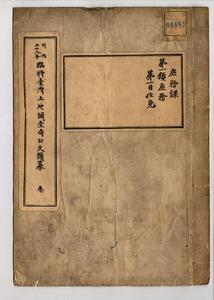 明治
三十八年
臨時臺灣土地調查局公文類纂
卷
庶務課
第一類庶務
第一目任免